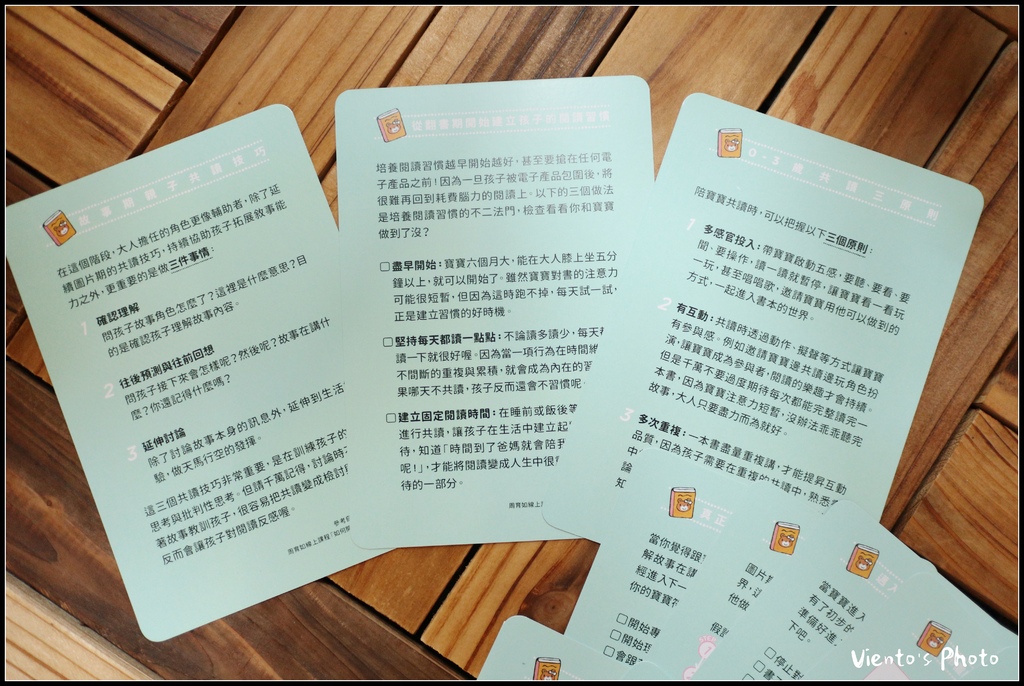 故事期親子共讀技巧
在這個階段，大人擔任的角色更像輔助者，除了延
續圖片期的共讀技巧，持續協助孩子拓展敘事能
力之外，更重要的是做三件事情：
1 確認理解
問孩子故事角色怎麼了？這裡是什麼意思？目
的是確認孩子理解故事內容。
2 往後預測與往前回想
問孩子接下來會怎樣呢？然後呢？故事在講什
麼？你還記得什麼嗎？
3 延伸討論
除了討論故事本身的訊息外，延伸到生活
驗，做天馬行空的發揮。
這三個共讀技巧非常重要，是在訓練孩子的
思考與批判性思考。但請千萬記得，討論時
著故事教訓孩子，很容易把共讀變成檢討
反而會讓孩子對閱讀反感喔。
參考
周育如線上課程「如何
培養閱讀習慣越早開始越好，甚至要搶在任何電
子產品之前！因為一旦孩子被電子產品包圍後，將
很難再回到耗費腦力的閱讀上。以下的三個做法
是培養閱讀習慣的不二法門，檢查看看你和寶寶
做到了沒？
□盡早開始：寶寶六個月大，能在大人膝上坐五分
鐘以上，就可以開始了。雖然寶寶對書的注意力
可能很短暫，但因為這時跑不掉，每天試一試，
正是建立習慣的好時機。
□堅持每天都讀一點點：不論讀多讀少，每天
讀一下就很好喔。因為當一項行為在時間
不間斷的重複與累積，就會成為內在的
果哪天不共讀，孩子反而還會不習慣呢
□建立固定閱讀時間：在睡前或飯後等
進行共讀，讓孩子在生活中建立起
待，知道「時間到了爸媽就會陪我
呢！」，才能將閱讀變成人生中很
待的一部分。
周育如線上
0-3歲共讀三原則
陪寶寶共讀時，可以把握以下三個原則：
1 多感官投入：帶寶寶啟動五感，要聽、要看、要
聞、要操作，讀一讀就暫停，讓寶寶看一看玩
一玩，甚至唱唱歌，邀請寶寶用他可以做到的
方式，一起進入書本的世界。
2 有互動：共讀時透過動作、擬聲等方式讓寶寶
有參與感。例如邀請寶寶邊共讀邊玩角色扮
演，讓寶寶成為參與者，閱讀的樂趣才會持續。
但是千萬不要過度期待每次都能完整讀完一
本書，因為寶寶注意力短暫，沒辦法乖乖聽完
故事，大人只要盡力而為就好。
3 多次重複：一本書盡量重複講，才能提昇互動
品質，因為孩子需要在重複的共讀中，熟悉
中
論
知
真正
當你覺得跟
解故事在講
經進入下一
你的寶寶
□開始專
□開始
□會跟
圖片
界，
他做
假
1
進入
當寶寶進入
有了初步的
準備好進
下吧。
□停止
□書
Viento's Photo